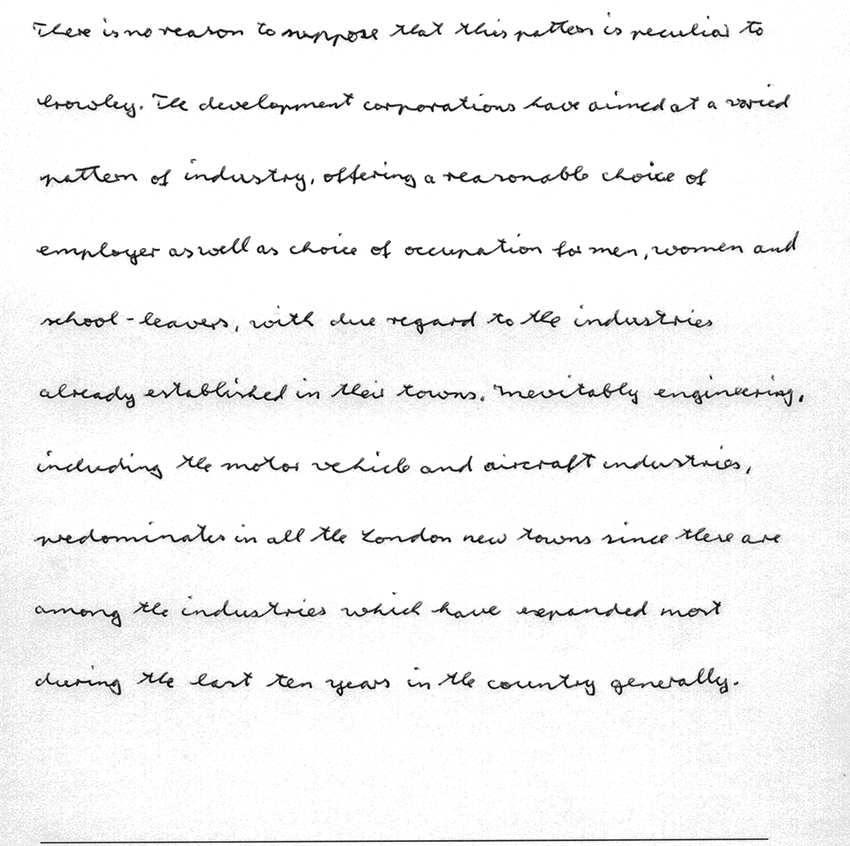 There is no reason to suppose that this pattern is peculiar to
Crawley. The development corporations have aimed at a varied
pattern of industry, offering a reasonable choice of
employer as well as choice of occupation for men, women and
school-leavers, with due regard to the industries
already established in their towns. Inevitably engineering,
including the motor vehicle and aircraft industries,
predominates in all the London new towns since these are
among the industries which have expanded most
during the last ten years in the country generally.